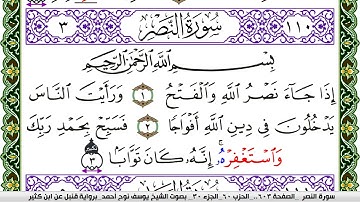 ١١٠ سُورَةُ النَّصْرِ ٣
بِسْمِ اللَّهِ الرَّحْمَٰنِ الرَّحِيمِ
إِذَا جَآءَ نَصْرُ اللَّهِ وَالْفَتْحُ ١ وَرَأَيْتَ النَّاسَ
يَدْخُلُونَ فِي دِينِ اللَّهِ أَفْوَاجًا ٢ فَسَبِّحْ بِحَمْدِ رَبِّكَ
وَاسْتَغْفِرْهُ إِنَّهُ كَانَ تَوَّابًا ٣
سورة النصر _ الصفحة ٦٠٣ .. الحزب ٦٠ .. الجزء ٣٠ .. بصوت الشيخ يوسف نوح أحمد .. برواية قنبل عن ابن كثير